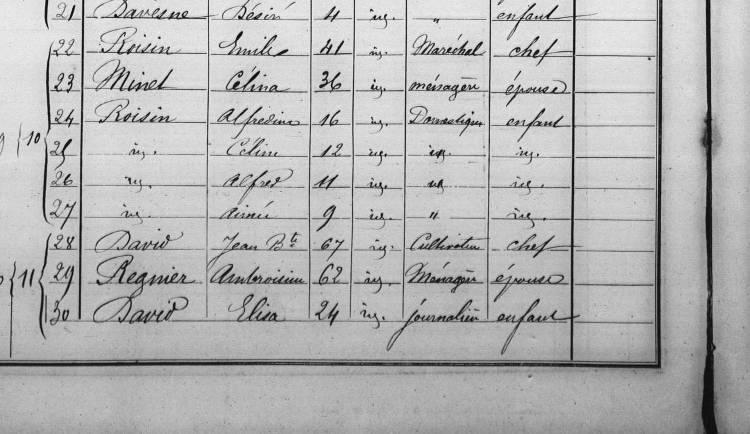 21 Davesne Désiré 4 id. " enfant
22 Roisin Emile 41 id. Maréchal chef
23 Minel Célina 36 id. ménagère épouse
24 Roisin Alfredine 16 id. Domestique enfant
10 25 id. Célina 12 id. id. id.
26 id. Alfred 11 id. id. id.
27 id. Aimée 9 id. " id.
28 David Jean Bte 67 id. Cultivateur chef
11 29 Regnier Ambroisine 62 id. Ménagère épouse
30 David Elisa 24 id. journalière enfant